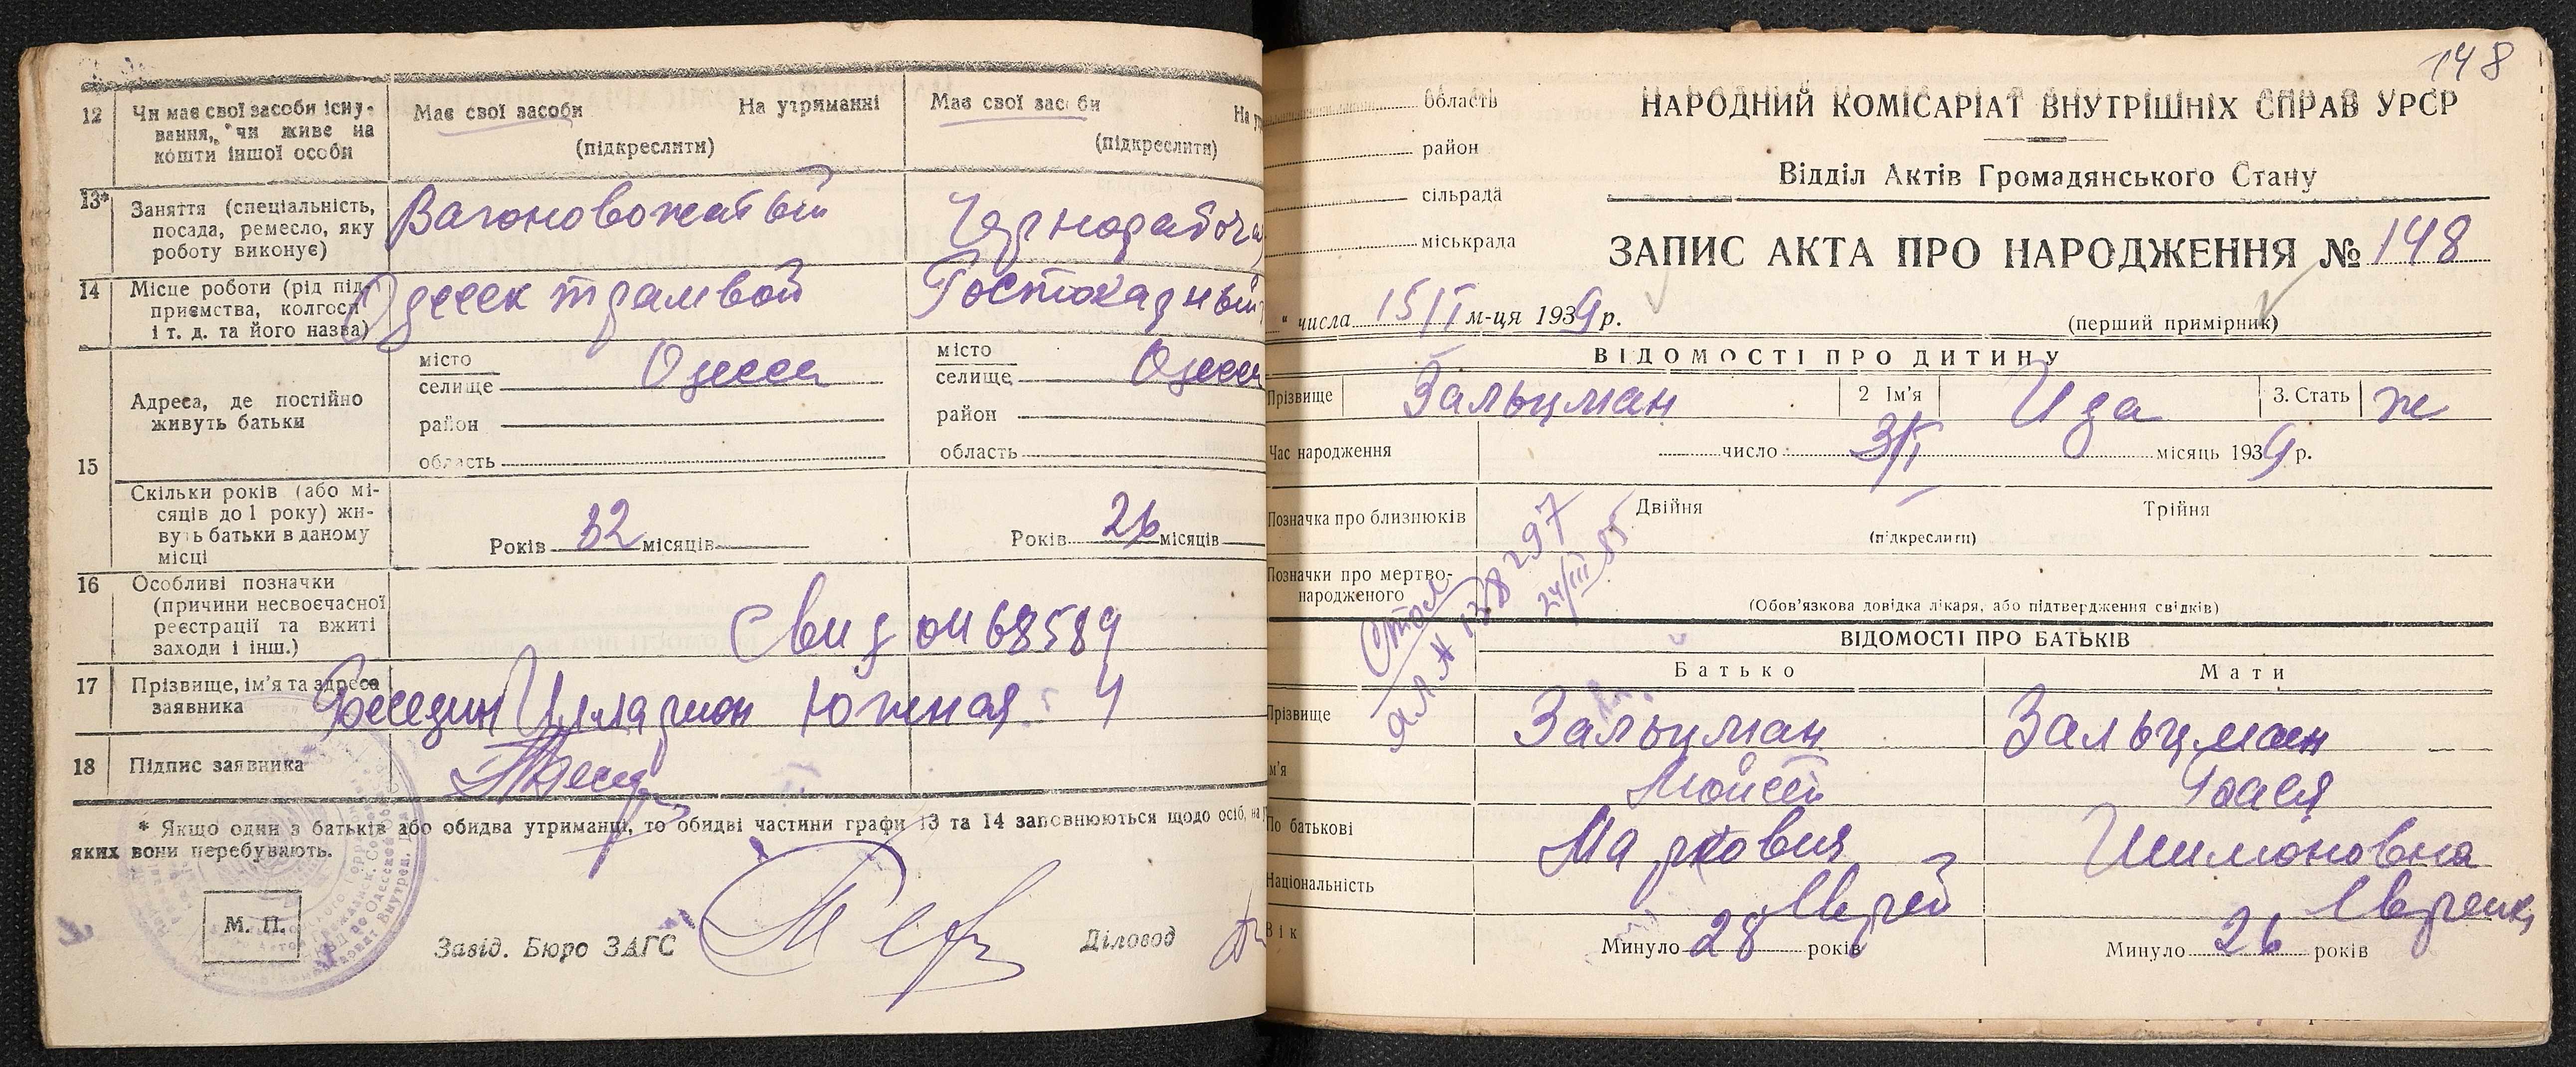 12 Чи має свої засоби існу-
вання, чи живе на
кошти іншої особи
Має свої засоби На утриманні
(підкреслити)
Має свої засоби На
(підкреслити)
13* Заняття (спеціальність,
посада, ремесло, яку
роботу виконує)
Вагоновожатый
Чернорабоча
14 Місце роботи (рід під-
приємства, колгосп
і т. д. та його назва)
Одесск трамвой
15 Адреса, де постійно
живуть батьки
місто
селище Одесса
район
область
місто
селище Одесса
район
область
Скільки років (або мі-
сяців до 1 року) жи-
вуть батьки в даному
місці
Років 32 місяців
Років 26 місяців
16 Особливі позначки
(причини несвоєчасної
реєстрації та вжиті
заходи і інш.)
Свид ОИ 68589
17 Прізвище, ім'я та адреса
заявника
Илларион Южная 4
18 Підпис заявника
* Якщо один з батьків або обидва утриманці, то обидві частини графи 13 та 14 заповнюються щодо осіб, на
яких вони перебувають.
М. П.
Завід. Бюро ЗАГС
Діловод
148
область
район
сільрада
міськрада
НАРОДНИЙ КОМІСАРІАТ ВНУТРІШНІХ СПРАВ УРСР
Відділ Актів Громадянського Стану
ЗАПИС АКТА ПРО НАРОДЖЕННЯ № 148
" числа 15/I м-ця 1939 р.
(перший примірник)
ВІДОМОСТІ ПРО ДИТИНУ
Прізвище Зальцман 2 Ім'я Ида 3. Стать ж
Час народження число 3/I місяць 1939 р.
Позначка про близнюків Двійня Трійня
(підкреслити)
Позначки про мертво-
народженого
(Обов'язкова довідка лікаря, або підтвердження свідків)
24/III 85
ВІДОМОСТІ ПРО БАТЬКІВ
Батько Мати
Прізвище Зальцман Зальцман
м'я Мойсей Бася
По батькові Маркович Шимоновна
Національність Еврей Еврейк
Вік Минуло 28 років Минуло 26 років